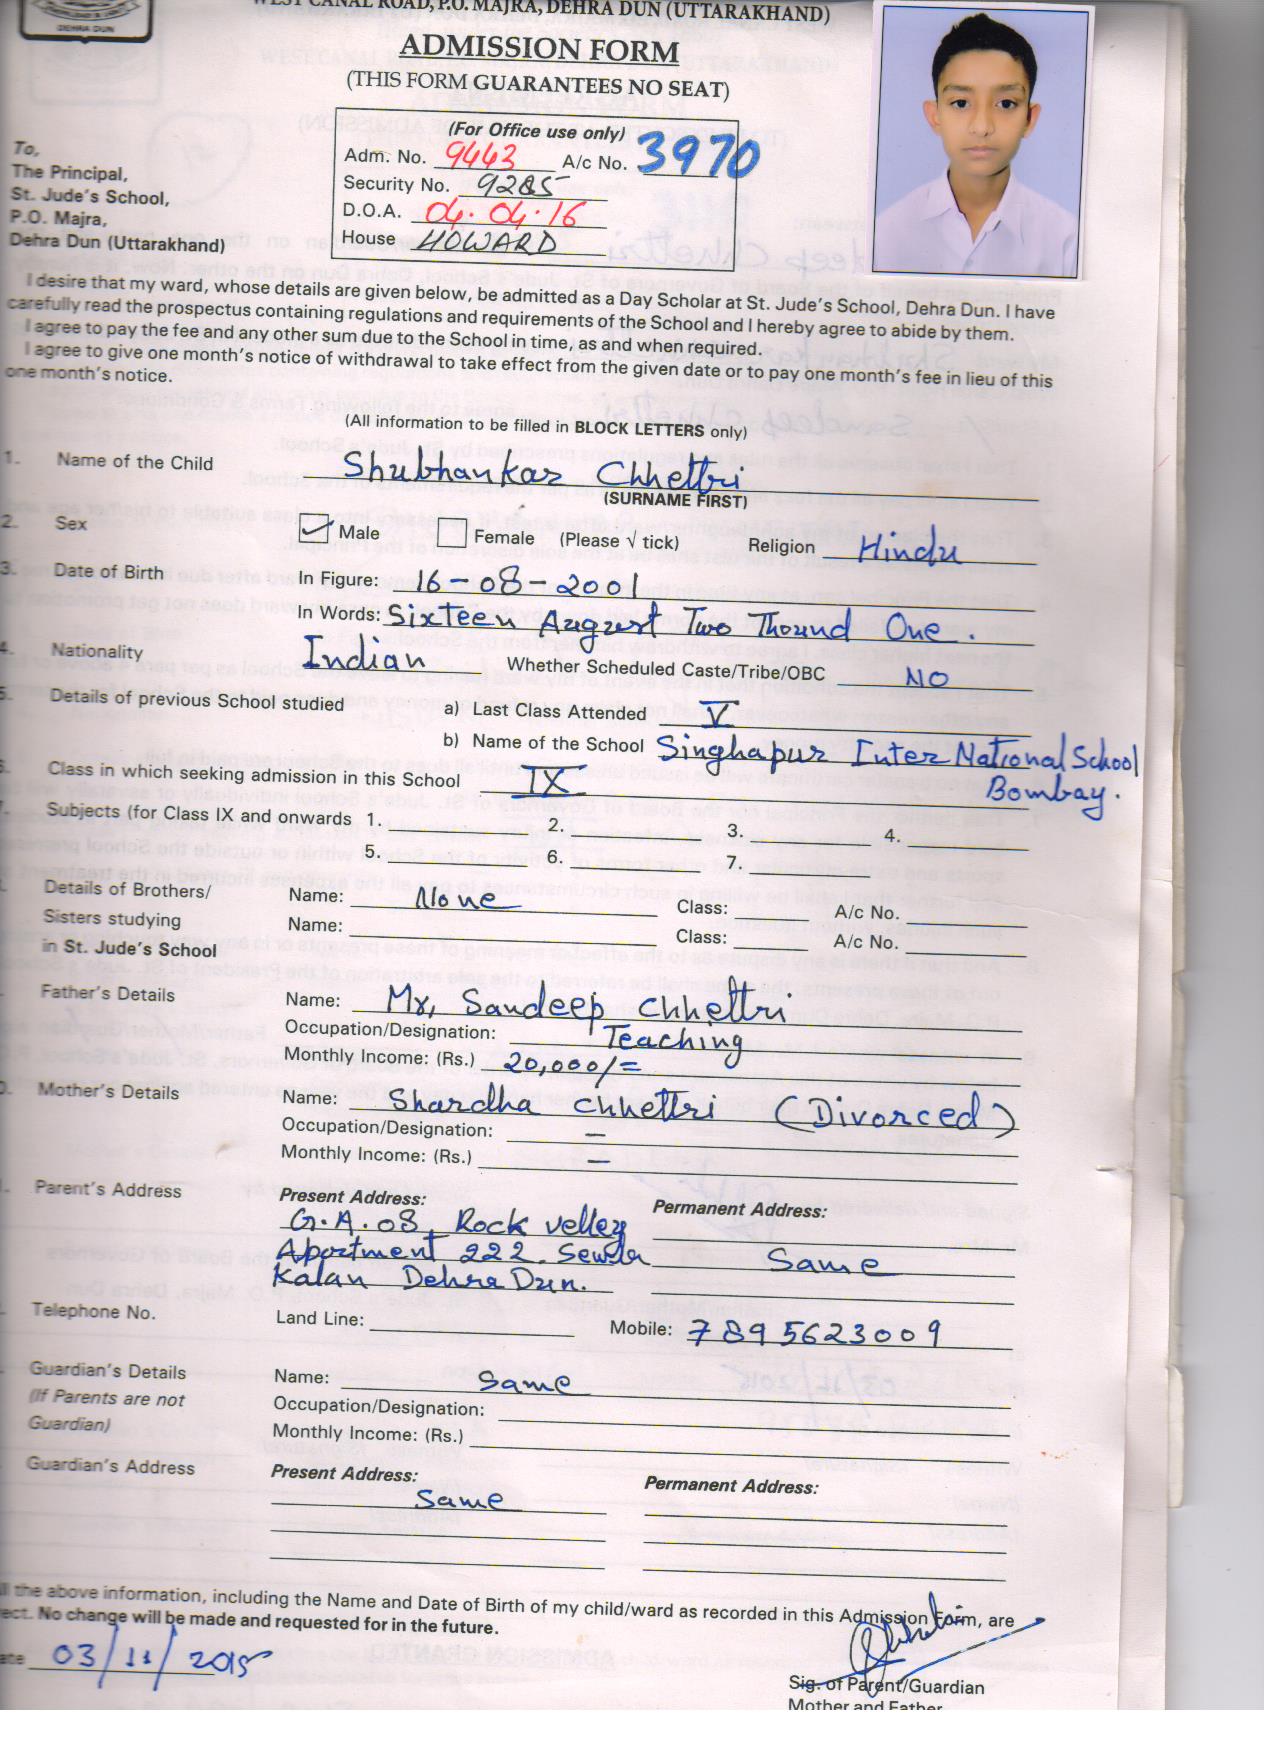 WEST CANAL ROAD, P.O. MAJRA, DEHRA DUN (UTTARAKHAND)
DEHRA DUN
ADMISSION FORM
(THIS FORM GUARANTEES NO SEAT)
(For Office use only)
Adm. No. 9443 A/c No. 3970
Security No. 9285
D.O.A. 04.04.16
House HOWARD
To,
The Principal,
St. Jude's School,
P.O. Majra,
Dehra Dun (Uttarakhand)
I desire that my ward, whose details are given below, be admitted as a Day Scholar at St. Jude's School, Dehra Dun. I have
carefully read the prospectus containing regulations and requirements of the School and I hereby agree to abide by them.
I agree to pay the fee and any other sum due to the School in time, as and when required.
I agree to give one month's notice of withdrawal to take effect from the given date or to pay one month's fee in lieu of this
one month's notice.
(All information to be filled in BLOCK LETTERS only)
1. Name of the Child Shubhankar Chhettri
(SURNAME FIRST)
2. Sex Male Female (Please √ tick) Religion Hindu
3. Date of Birth In Figure: 16-08-2001
In Words: Sixteen August Two Thound One.
4. Nationality Indian Whether Scheduled Caste/Tribe/OBC NO
5. Details of previous School studied a) Last Class Attended V
b) Name of the School Singhapur Inter National School
Bombay.
6. Class in which seeking admission in this School IX
7. Subjects (for Class IX and onwards 1. 2. 3. 4.
5. 6. 7.
Details of Brothers/ Name: None Class: A/c No.
Sisters studying Name: Class: A/c No.
in St. Jude's School
Father's Details Name: Mr, Sandeep Chhettri
Occupation/Designation: Teaching
Monthly Income: (Rs.) 20,000/=
Mother's Details Name: Shardha Chhettri (Divorced)
Occupation/Designation: –
Monthly Income: (Rs.) –
Parent's Address Present Address: Permanent Address:
G.A.08, Rock velley
Apartment 222. Sewla Same
Kalan Dehra Dun.
Telephone No. Land Line: Mobile: 7895623009
Guardian's Details Name: Same
(If Parents are not Occupation/Designation:
Guardian) Monthly Income: (Rs.)
Guardian's Address Present Address: Permanent Address:
Same
All the above information, including the Name and Date of Birth of my child/ward as recorded in this Admission Form, are
rect. No change will be made and requested for in the future.
ate 03/11/2015
Sig. of Parent/Guardian
Mother and Father